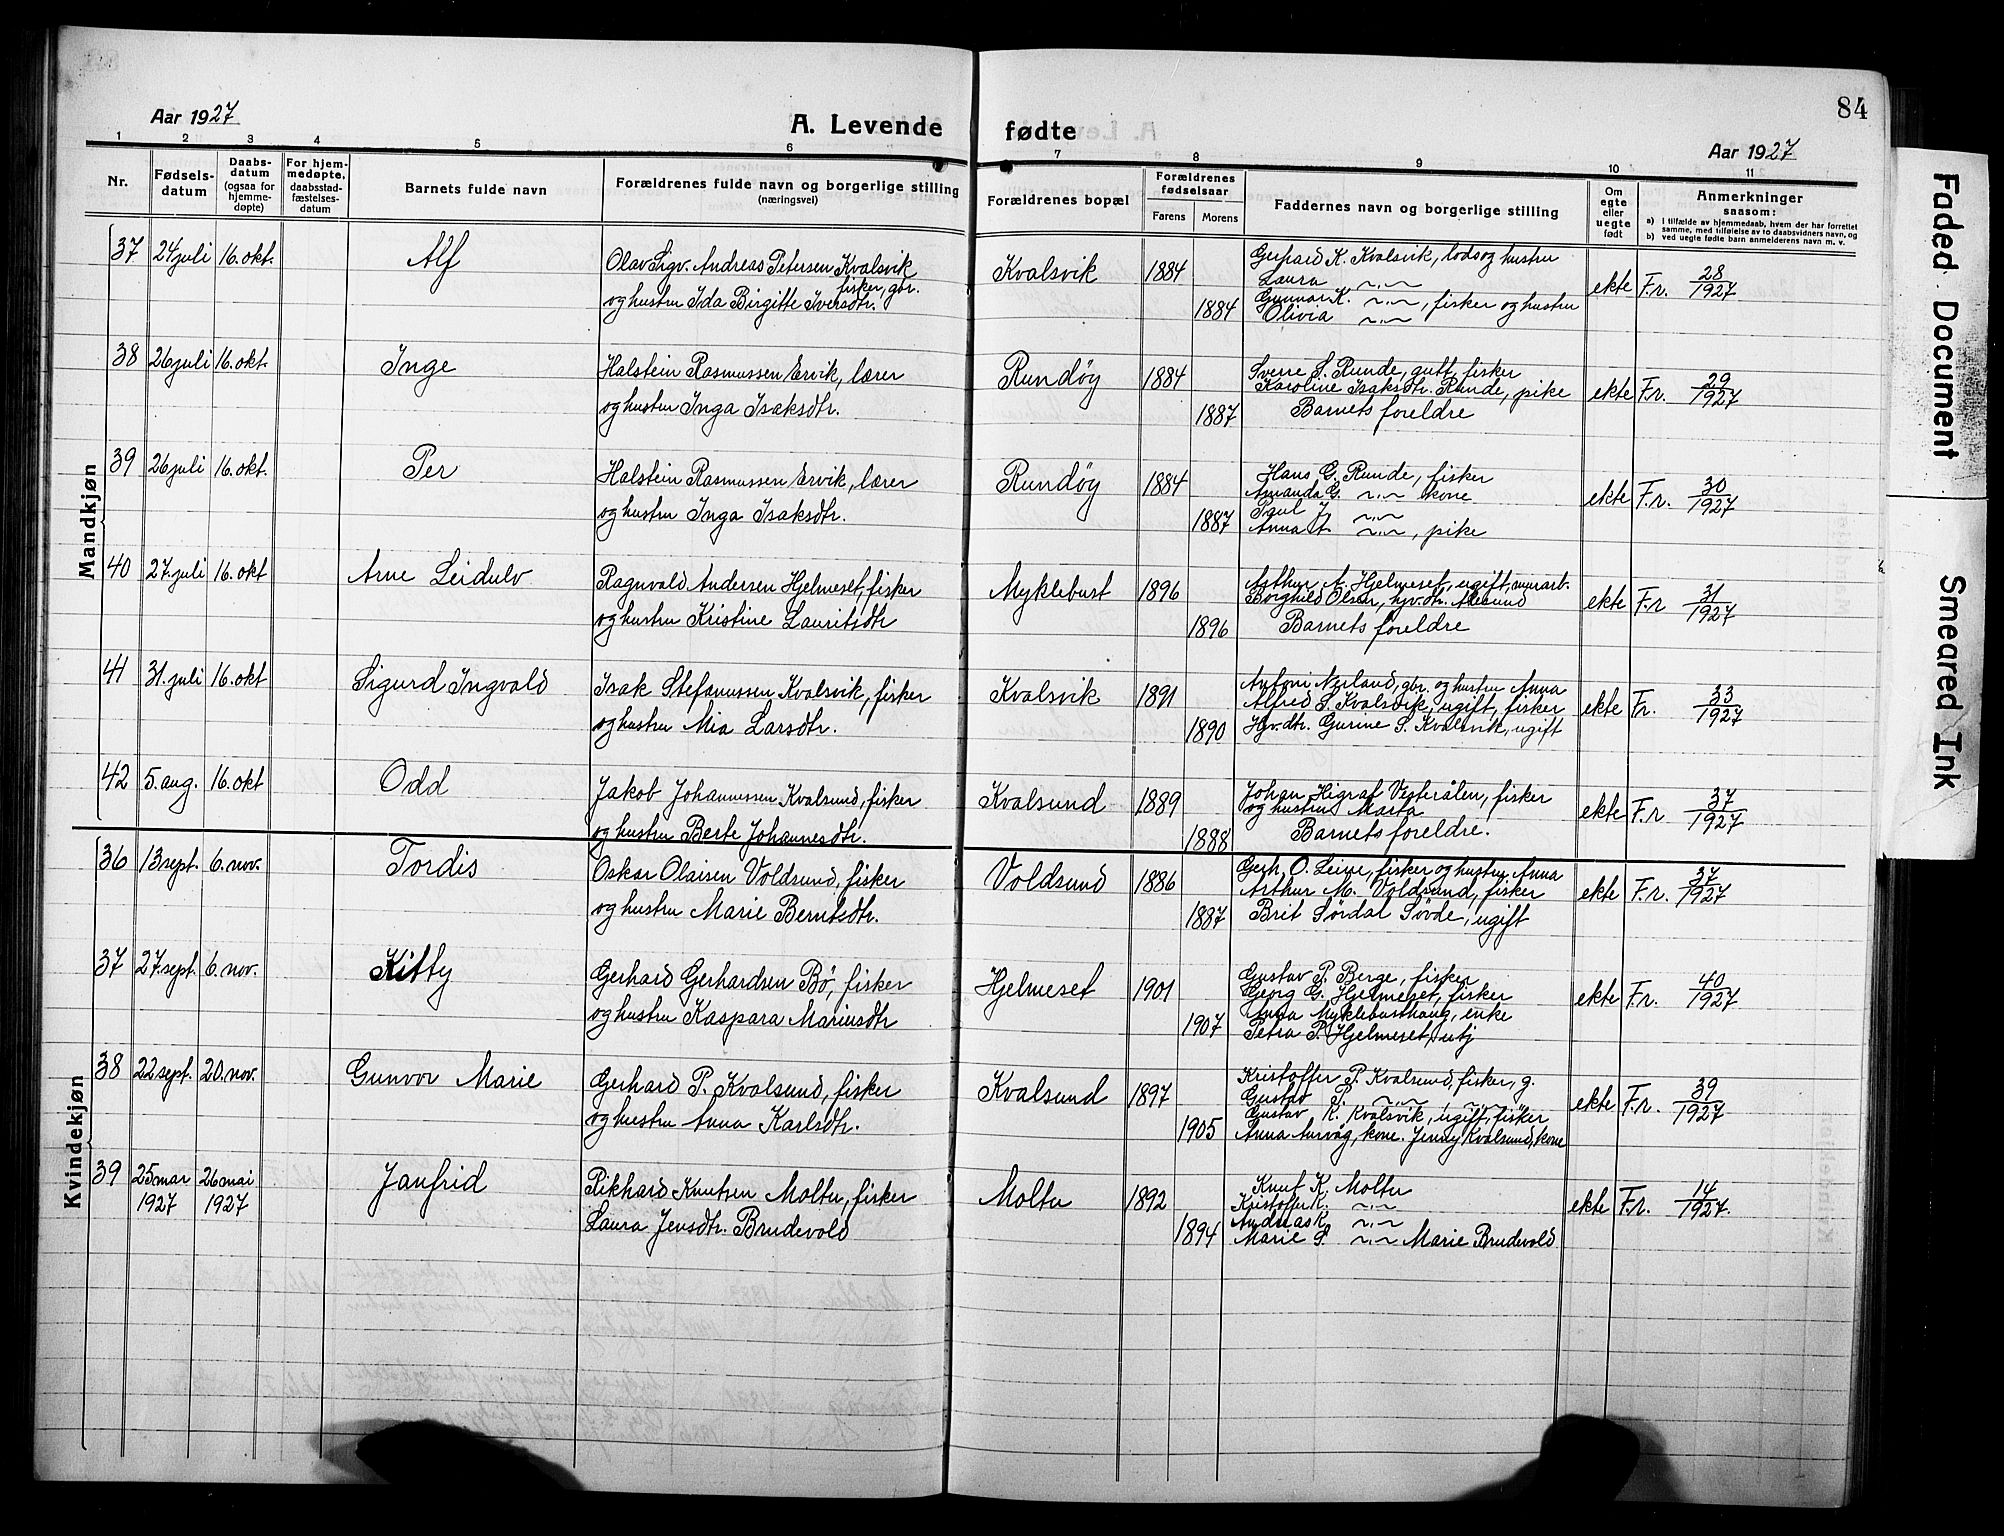 84
Aar 1927
A. Levende fødte
Aar 1927
1 2 3 4 5 6 7 8 9 10 11
Nr.
Fødsels-
datum
Daabs-
datum
(ogsaa for
hjemme-
døpte)
For hjem-
medøpte,
daabsstad-
fæstelses-
datum
Barnets fulde navn
Forældrenes fulde navn og borgerlige stilling
(næringsvei)
Forældrenes bopæl
Forældrenes
fødselsaar
Farens Morens
Faddernes navn og borgerlige stilling
Om
egte
eller
uegte
født
Anmerkninger
saasom:
a) I tilfælde av hjemmedaab, hvem der har forrettet
samme, med tilføielse av to daabsvidners navn, og
b) ved uegte fødte barn anmelderens navn m. v.
Mandkjøn
37 24 juli 16. okt. Alf
Olav Sigv. Andreas Petersen Kvalsvik
fisker, gbr.
og hustru Ida Birgitte Iversdtr.
Kvalsvik 1884 1884
Gerhard K. Kvalsvik, lods og hustru
Laura ~.~
Gunnar K. ~.~, fisker og hustru
Olivia ~.~
ekte F.r. 28/1927
38 26 juli 16. okt. Inge
Halstein Rasmussen Ervik, lærer
og hustru Inga Isaksdtr.
Rundøy 1884 1887
Sverre S. Runde, gutt, fisker
Karoline Isaksdtr. Runde, pike
Barnets foreldre
ekte F.r. 29/1927
39 26 juli 16. okt. Per
Halstein Rasmussen Ervik, lærer
og hustru Inga Isaksdtr.
Rundøy 1884 1887
Hans G. Runde, fisker
Amanda G. ~.~ kone
Paul J. ~.~
Anna A. ~.~, pike
ekte F.r. 30/1927
40 27. juli 16. okt Arne Leidulv
Ragnvald Andersen Hjelmeset, fisker
og hustru Kristine Lauritsdtr
Myklebust 1896 1896
Arthur A. Hjelmeset, ugift, murarb.
Borghild Olsen, hjv.dtr. Ålesund
Barnets foreldre
ekte F.r 31/1927
41 31. juli 16. okt Sigurd Ingvald
Isak Stefanussen Kvalsvik, fisker
og hustru Mia Larsdtr.
Kvalsvik 1891 1890
Antoni Nerland, gbr. og hustru Anna
Alfred S. Kvalsvik, ugift, fisker
Hjv.dtr. Gurine S. Kvalsvik, ugift
ekte Fr. 33/1927
42 5. aug. 16. okt Odd
Jakob Johannessen Kvalsund, fisker
og hustru Berte Johannesdtr.
Kvalsund 1889 1888
Johan Higraf Vesterålen, fisker
og hustru Marta
Barnets foreldre.
ekte F.r 37/1927
Kvindekjøn
36 13 sept. 6. nov. Tordis
Oskar Olaisen Voldsund, fisker
og hustru Marie Berntsdtr.
Voldsund 1886 1887
Gerh. O. Leine, fisker og hustru Anna
Arthur M. Voldsund, fisker
Brit Sørdal Søvde, ugift
ekte F.r. 37/1927
37 27. sept. 6. nov. Kitty
Gerhard Gerhardsen Bø, fisker
og hustru Kaspara Mariusdtr
Hjelmeset 1901 1907
Gustav P. Berge, fisker
Georg G. Hjelmeset, fisker
Anna Myklebusthaug, enke
Petra P. Hjelmeset, utj
ekte F.r. 40/1927
38 22 sept. 20. nov. Gunvor Marie
Gerhard P. Kvalsund, fisker
og hustru Anna Karlsdtr.
Kvalsund 1897 1905
Kristoffer P. Kvalsund, fisker, g.
Gustav P. ~.~
Gustav K. Kvalsvik, ugift, fisker
Anna Aurvåg, kone. Jenny Kvalsund, kone
ekte F.r. 39/1927
39 25 mar 1927 26 mai 1927 Janfrid
Rikhard Knutsen Moltu, fisker
Laura Jensdtr. Brudevold
Moltu 1892 1894
Knut K. Moltu
Kristoffer K. ~.~
Andreas K. ~.~
Marie S. ~.~ Marie Brudevold
ekte F.r. 14/1927.
Faded Document
Smeared Ink